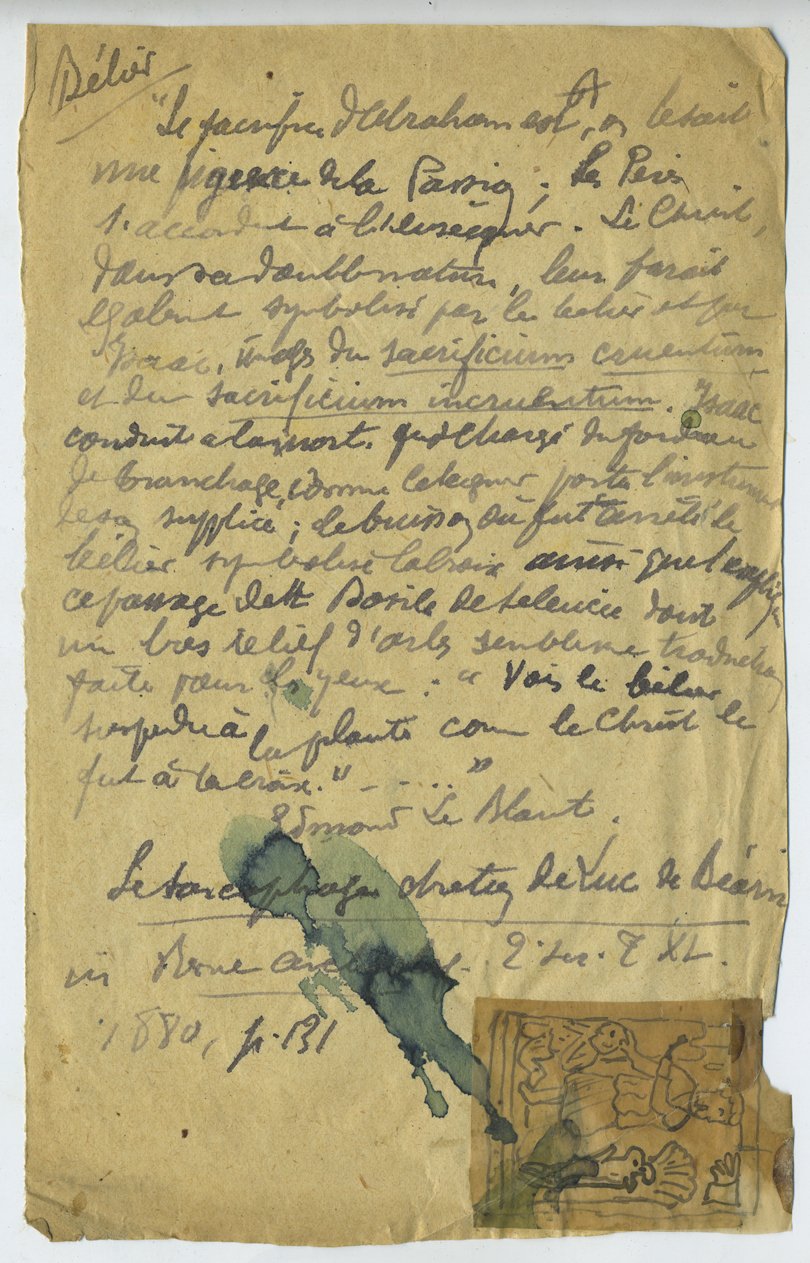 Bélier
"Le sacrifice d'Abraham est, on le sait
une figure de la Passion ; les Pères
s'accordent à l'enseigner. Le Christ,
dans sa double nature, leur parait
également symbolisé par le bélier et par
Isaac, image du sacrificium cruentum
et du sacrificium incruentum. Isaac
conduit à la mort, fut chargé du fardeau
de branchage, comme le Seigneur porta l'instrument
de son supplice ; le buisson où fut arrêté le
bélier symbolise la croix ainsi que l'explique
ce passage de St Basile de Seleucie dont
un bas relief d'Arles semble une traduction
faite pour les yeux : " Vois le bélier
suspendu à la plante comme le Christ le
fut à la croix." - . . . . "
Edmond Le Blant.
Le sarcophage chretien de Luc de Béarn
in Revue archeolog. 2e ser. T XL.
1880, p. 131